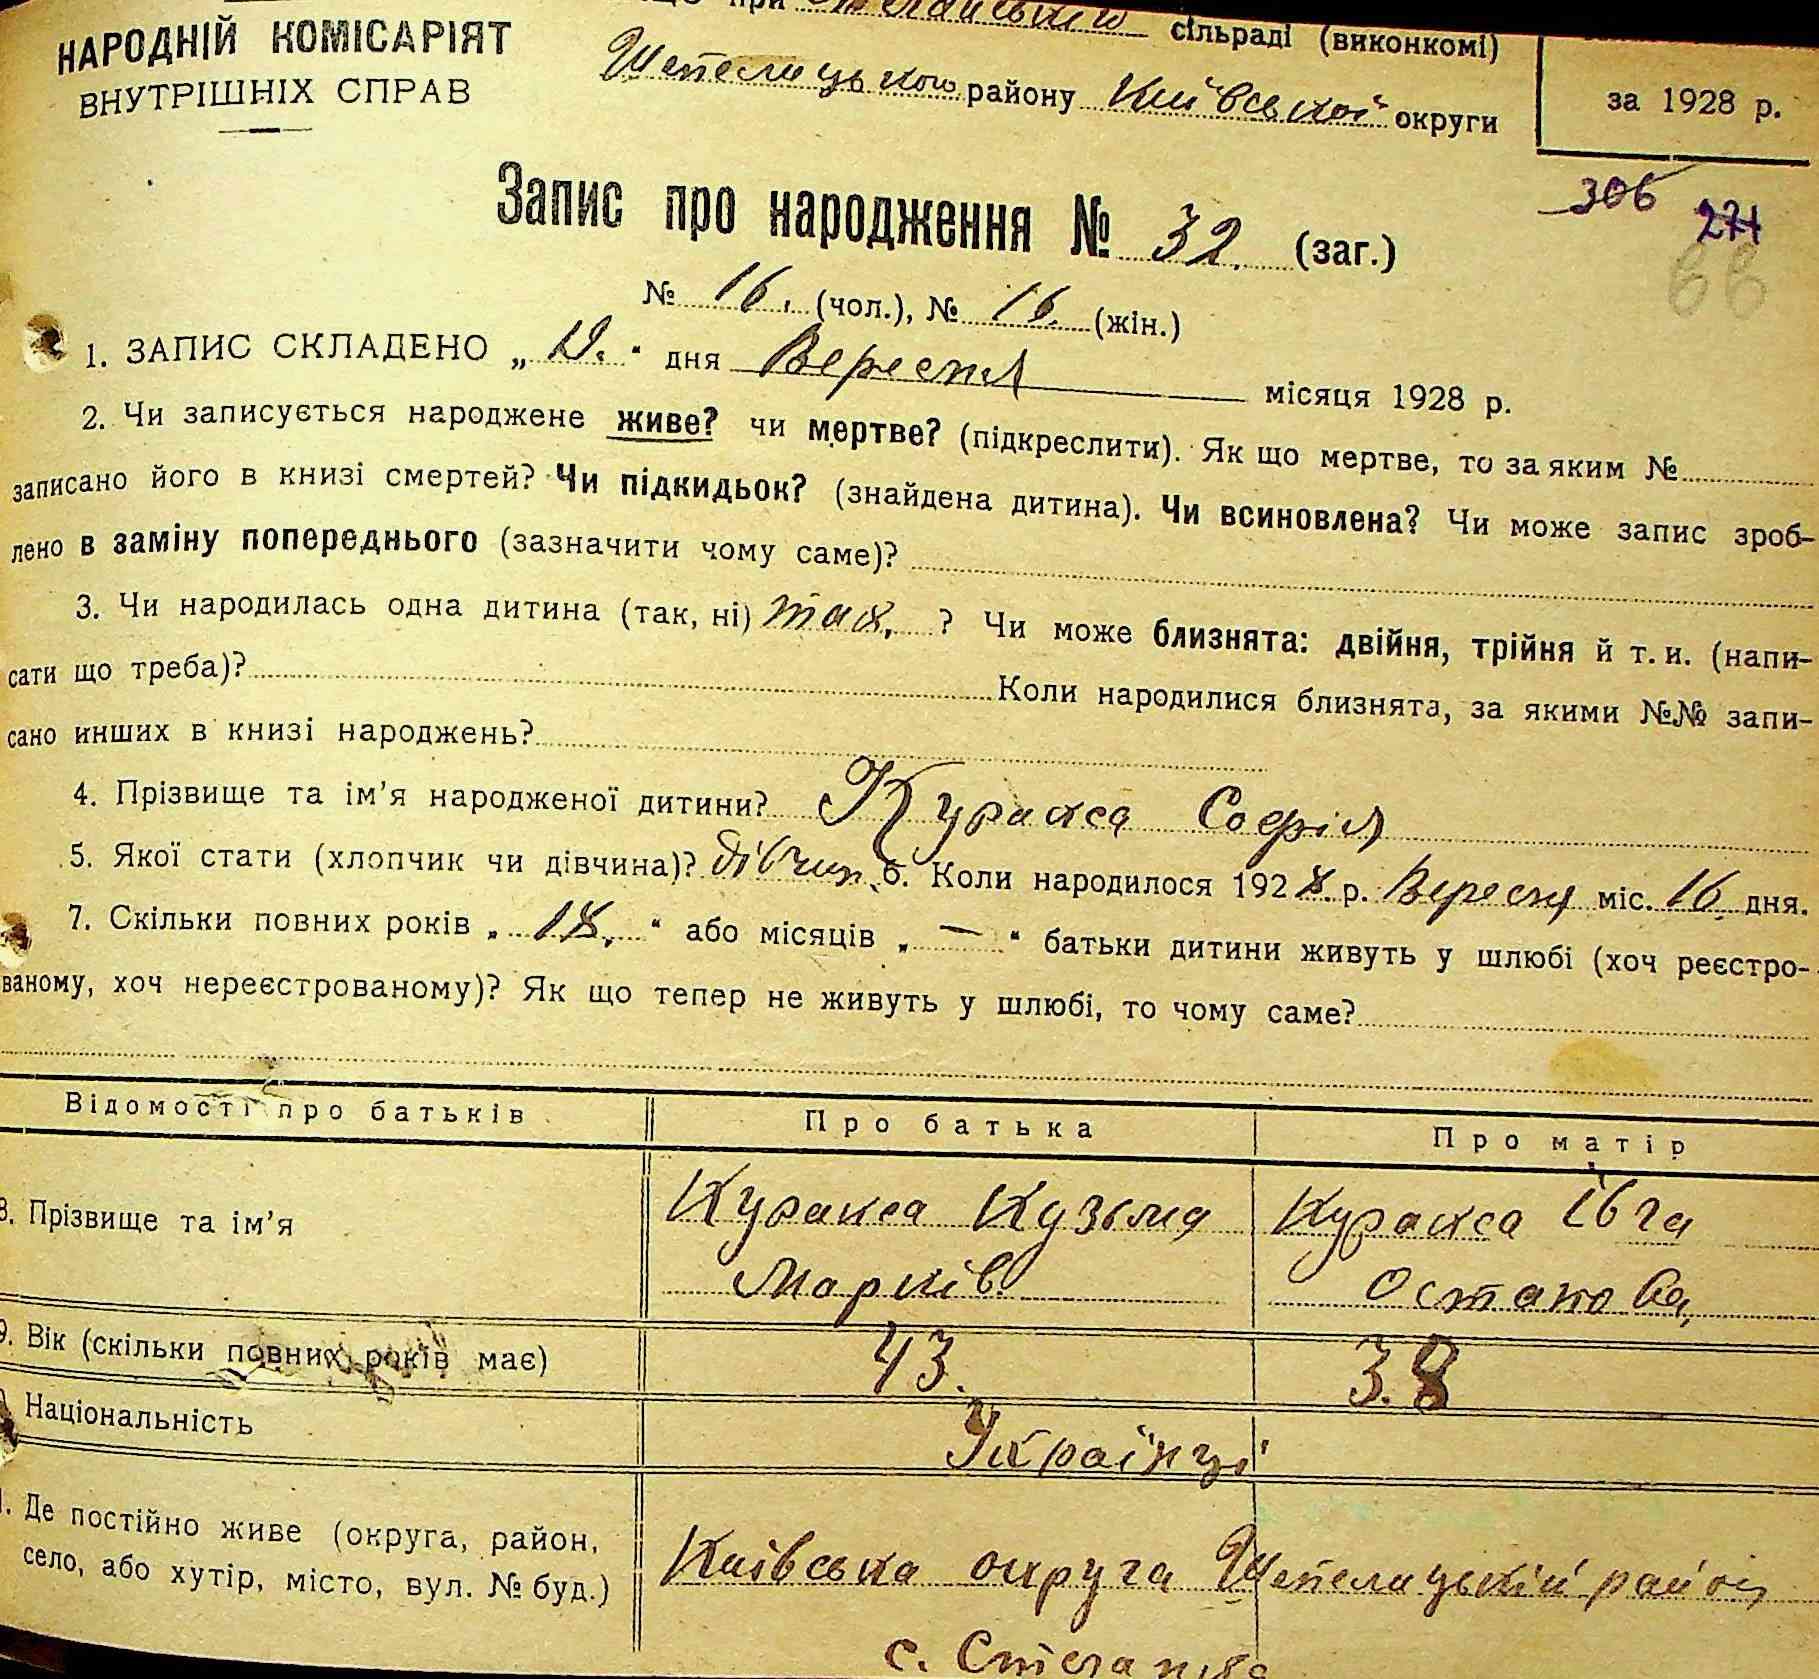 НАРОДНІЙ КОМІСАРІЯТ
ВНУТРІШНІХ СПРАВ
при сільраді (виконкомі)
Шепелицького району Київської округи
за 1928 р.
306 271
Запис про народження № 32. (заг.)
№ 16. (чол.), № 16. (жін.)
1. ЗАПИС СКЛАДЕНО „ “ дня Вересня місяця 1928 р.
2. Чи записується народжене живе? чи мертве? (підкреслити). Як що мертве, то за яким №
записано його в книзі смертей? Чи підкидьок? (знайдена дитина). Чи всиновлена? Чи може запис зроб-
лено в заміну попереднього (зазначити чому саме)?
3. Чи народилась одна дитина (так, ні) так. ? Чи може близнята: двійня, трійня й т. и. (напи-
сати що треба)? Коли народилися близнята, за якими №№ запи-
сано инших в книзі народжень?
4. Прізвище та ім’я народженої дитини? Куракса Софія
5. Якої стати (хлопчик чи дівчина)? дівчин. 6. Коли народилося 1928 р. Вересня міс. 16 дня.
7. Скільки повних років „ 18. “ або місяців „ — “ батьки дитини живуть у шлюбі (хоч реєстро-
ваному, хоч нереєстрованому)? Як що тепер не живуть у шлюбі, то чому саме?
Відомості про батьків Про батька Про матір
8. Прізвище та ім’я Куракса Кузьма Куракса Івга
Марків. Остапова,
9. Вік (скільки повних років має) 43. 38
Національність Українці
Де постійно живе (округа, район,
село, або хутір, місто, вул. № буд.) Київська округа Шепелицький район
с.